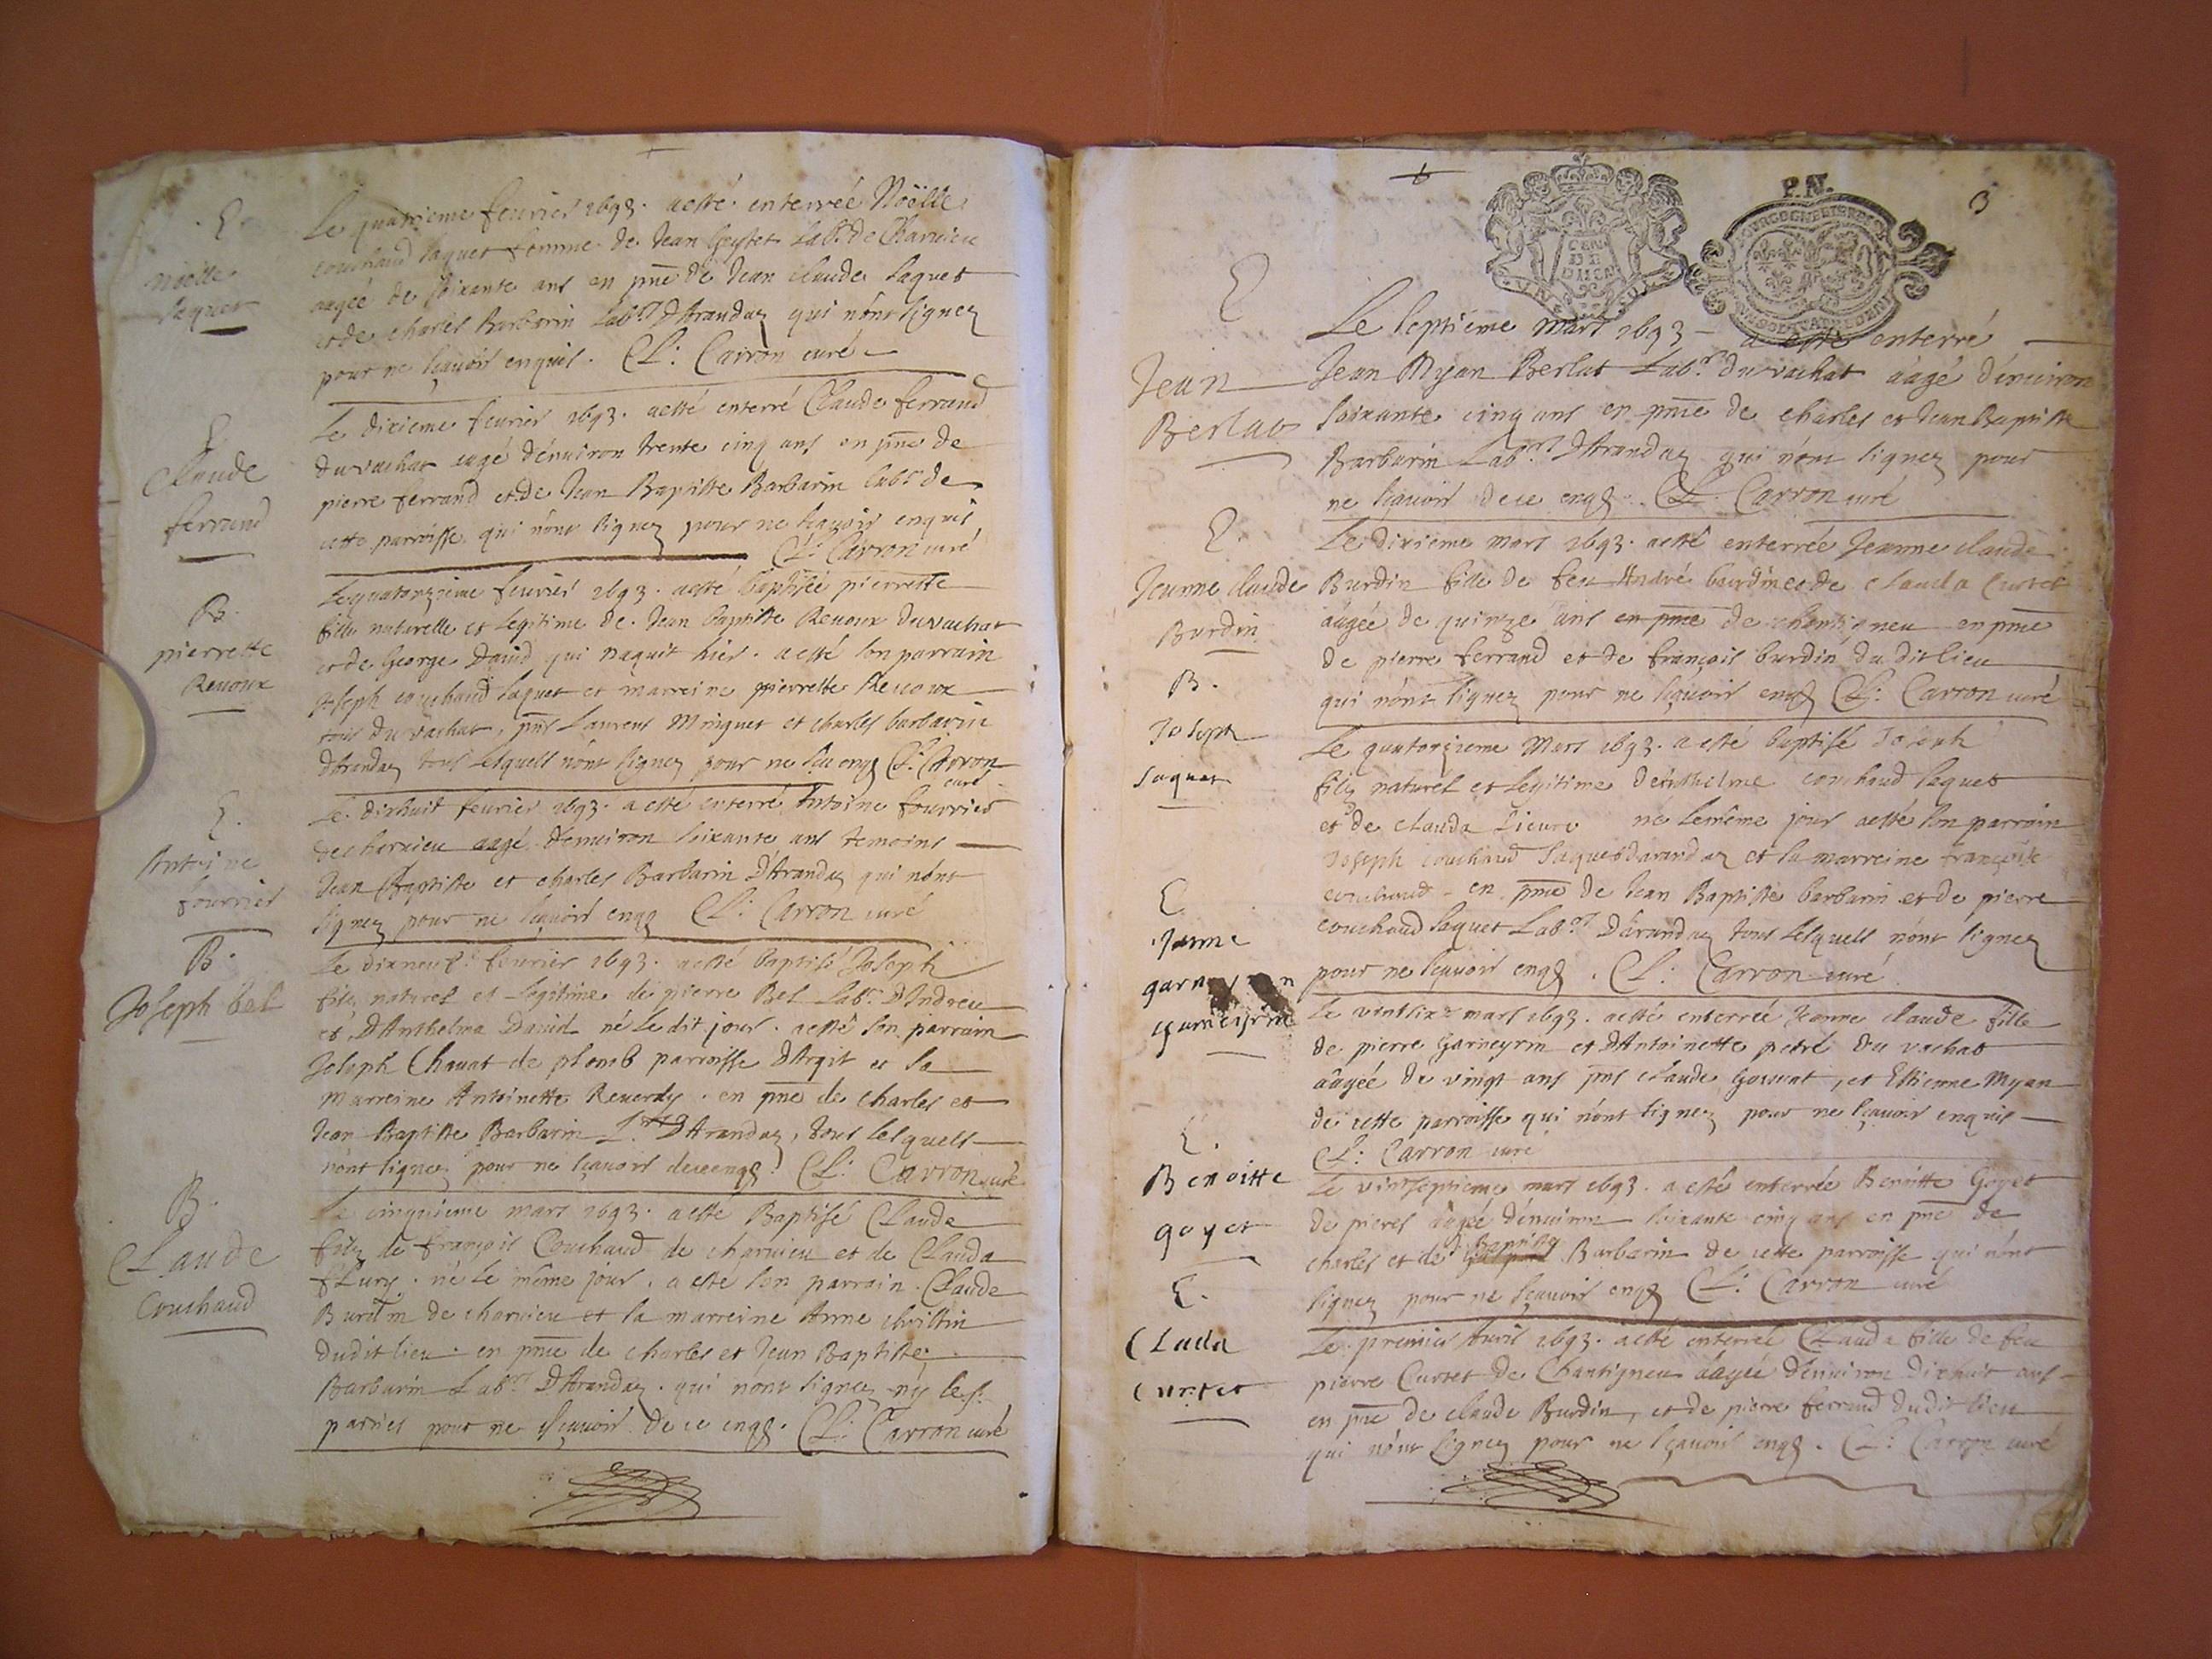 E.
Noëlle
saquet
Le quatrieme feurier 1693. a esté enterrée Noëlle
couchaud saquet femme de Jean Geytet Labr. de Charuieu
aagée de soixante ans en pnce de Jean Claude saquet
et de charles Barbarin Labrs. D'Arandaz qui n'ont signez
pour ne sçauoir enquis. Cl: Carron curé
E
Claude
ferrand
Le dixieme feurier 1693. a esté enterré Claude ferrand
du vachat aagé d'enuiron trente cinq ans en pnce de
pierre ferrand et de Jean Baptiste Barbarin labr. de
cette parroisse qui n'ont signez pour ne sçauoir enquis
Cl: Carron curé
B.
pierrette
Reuoux
Le quatorzieme feurier 1693. a esté baptisée pierrette
fille naturelle et legitime de Jean baptiste Reuoux du vachat
et de George Dauid qui naquit hier. a esté son parrain
Joseph couchaud saquet et marreine pierrette Reuoux
tous du vachat, pnts Laurent Minguet et charles barbarin
d'Arandaz tous lesquels n'ont signez pour ne sçau enqs Cl: Carron
curé
E.
Antoine
fourrier
Le dixhuit feurier 1693. a esté enterré Antoine fourrier
de charuieu aagé d'enuiron soixante ans temoins
Jean Baptiste et charles Barbarin D'Arandaz qui n'ont
signez pour ne sçauoir enqs Cl: Carron curé
B.
Joseph bel
Le dixneuf feurier 1693. a esté baptisé Joseph
filz naturel et legitime de pierre Bel Labr. D'Indreu
et D'Anthelma Dauid né le dit jour. a esté son parrain
Joseph Chauat de plomb parroisse d'Argit et sa
Marreine Antoinette Reuerdy. en pnce de charles et
Jean Baptiste Barbarin Lrs D'Arandaz, tous lesquels
n'ont signez pour ne sçauoir de ce enqs. Cl: Carron curé
B.
Claude
Couchaud
Le cinquieme mars 1693. a esté Baptisé Claude
filz de françois Couchaud de charuieu et de Clauda
fLury. né le même jour. a esté son parrain Claude
Burdin de charuieu et la marreine Anne christin
dudit lieu. en pnce de charles et Jean Baptiste
Barbarin Labrs D'Arandaz. qui n'ont signez ny les
parties pour ne sçauoir de ce enqs. Cl: Carron curé
P.N.
3
E
Jean
Berlat
Le septiéme mars 1693 a esté enterré
Jean Myan Berlat Labr. du vachat aagé d'enuiron
soixante cinq ans en pnce de charles et Jean Baptiste
Barbarin Labrs D'Arandaz qui n'ont signez pour
ne sçauoir de ce enqs. Cl: Carron curé
E.
Jeanne claude
Burdin
Le dixieme mars 1693. a esté enterrée Jeanne claude
Burdin fille de feu André bourdin et de clauda Curtet
aagée de quinze ans en pnce de chantigneu en pnce
de pierre ferrand et de françois burdin du dit lieu
qui n'ont signez pour ne sçauoir enqs Cl: Carron curé
B.
Joseph
saquet
Le quatorzieme Mars 1693. a esté baptisé Joseph
filz naturel et legitime d'anthelme couchaud saquet
et de clauda Lieure né le même jour a esté son parrain
Joseph couchaud saquet d'arandaz et la marreine françoise
couchaud en pnce de Jean Baptiste barbarin et de pierre
couchaud saquet Labrs D'arandaz tous lesquels n'ont signez
pour ne sçauoir enqs. Cl: Carron curé
E.
Janne
garneyrin
Le vintsix mars 1693. a esté enterrée Jeanne claude fille
de pierre Garneyrin et D'Antoinette petré du vachat
aâgée de vingt ans pnts claude Gouuat, et Estienne Myan
de cette parroisse qui n'ont signez pour ne sçauoir enquis
Cl: Carron curé
E.
Benoitte
goyet
Le vintseptieme mars 1693. a esté enterrée Benoitte Goyet
de pieres aagée d'enuiron soixante cinq ans en pnce de
charles et de Baptiste Barbarin de cette parroisse qui n'ont
signez pour ne sçauoir enqs Cl: Carron curé
E.
CLada
Curtet
Le premier Auril 1693. a esté enterrée Clauda fille de feu
pierre Curtet de Chantigneu aagée d'enuiron dixhuit ans
en pnce de claude Burdin, et de pierre ferrand dudit lieu
qui n'ont signez pour ne sçauoir enqs. Cl: Carron curé